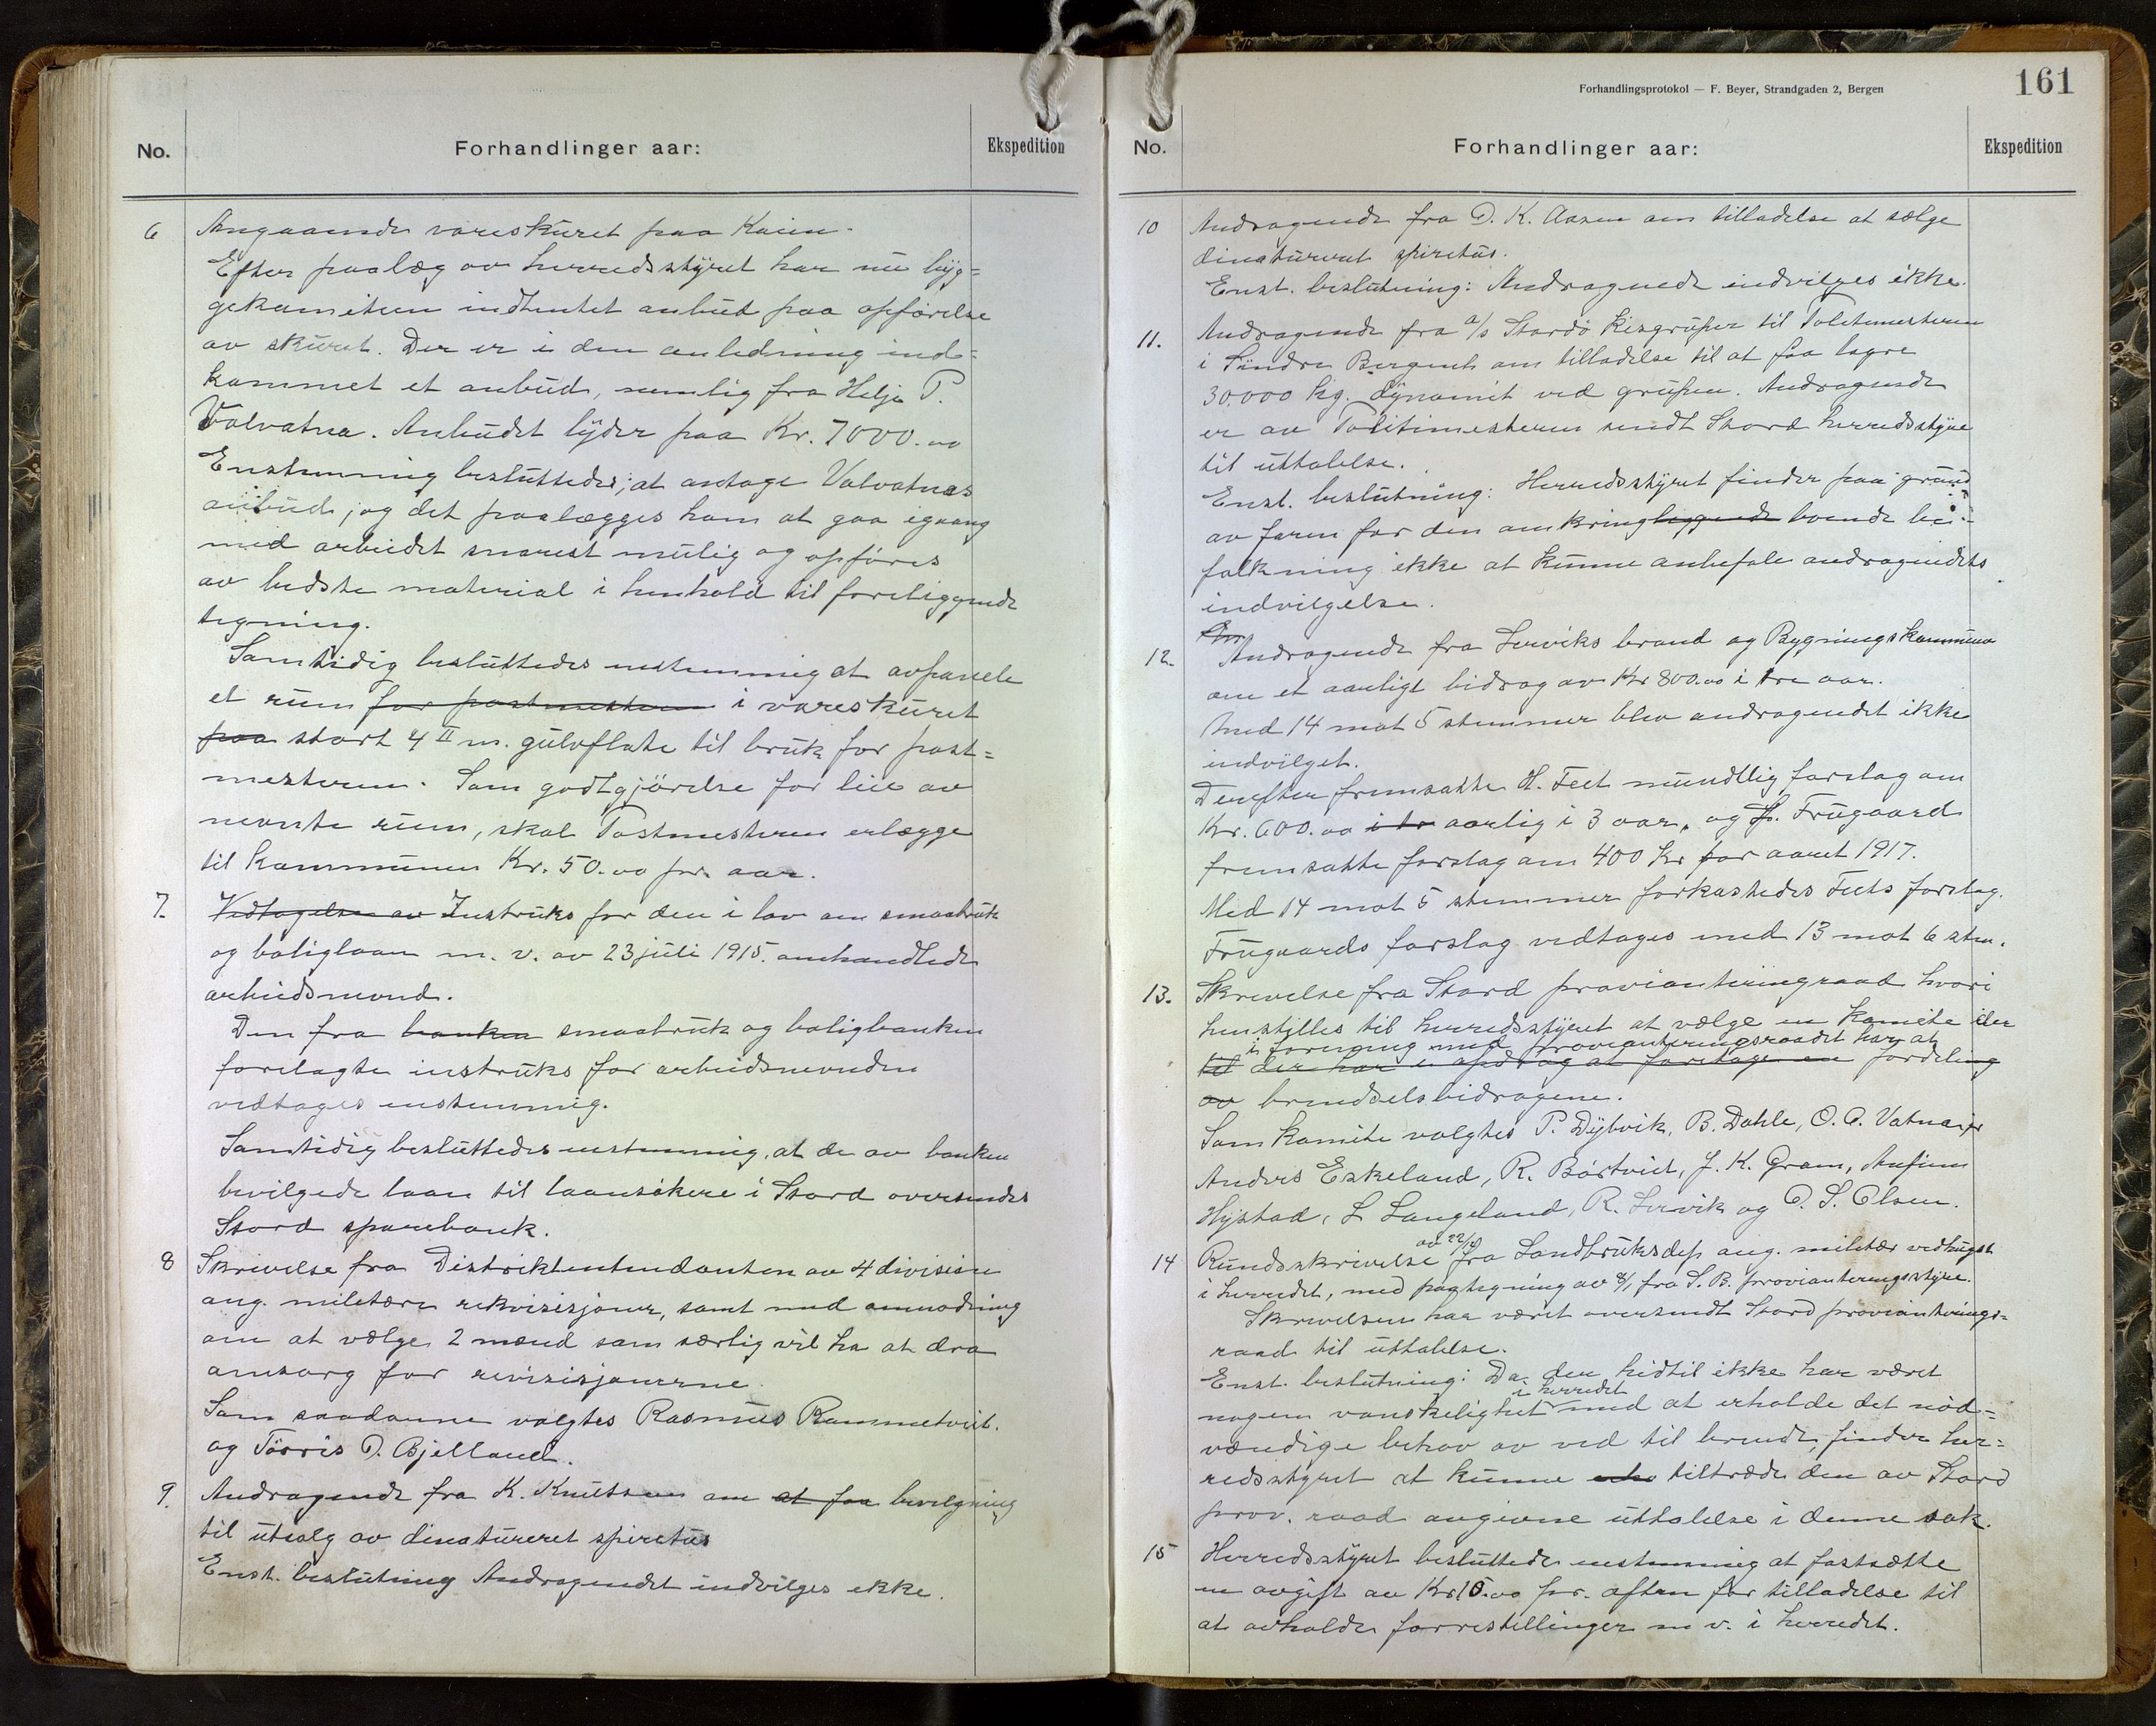 No.
Forhandlinger aar:
Ekspedition
6 Angaaende vareskuret paa Kaien.
Efter paalæg av herredsstyret har nu byg=
gekomiteen indhentet anbud paa opførelse
av skuret. Der er i den anledning ind=
kommet et anbud, nemlig fra Helje P.
Valvatna. Anbudet lyder paa Kr. 7000.00
Enstemmig besluttedes; at antage Valvatnas
anbud, og det paalægges ham at gaa igaang
med arbeidet snarest mulig og opføres
av bedste material i henhold til foreliggende
tegning.
Samtidig besluttedes enstemmig at avpanele
et rum for postmesteren i vareskuret
paa stort 4 II m. gulvflate til bruk for post=
mesteren. Som godtgjørelse for leie av
nevnte rum, skal Postmesteren erlægge
til kommunen Kr. 50.00 pr. aar.
7. Vedtagelse av Instruks for den i lov om smaabruk
og boliglaan m. v. av 23 juli 1915. omhandlede
arbeidsnevnd.
Den fra banken smaabruk og boligbanken
forelagte instruks for arbeidsnevnden
vedtages enstemmig.
Samtidig besluttedes enstemmig, at de av banken
bevilgede laan til laansøkere i Stord oversendes
Stord sparebank.
8 Skrivelse fra Distriktentendanten av 4 division
ang. militære rekvisisjoner, samt med anmodning
om at vælge 2 mænd som særlig vil ha at dra
omsorg for revisisjonerne.
Som saadanne valgtes Rasmus Rommetveit.
og Tørris O. Bjelland.
9. Andragende fra K. Knutsen om at faa bevilgning
til utsalg av dinatureret spiretus
Enst. beslutning Andragendet indvilges ikke.
Forhandlingsprotokol — F. Beyer, Strandgaden 2, Bergen
161
No.
Forhandlinger aar:
Ekspedition
10 Andragende fra O. K. Aasen om tilladelse at sælge
dinatureret spiretus.
Enst. beslutning: Andragende indvilges ikke.
11. Andragende fra a/s Stordø Kisgruber til Politimesteren
i Søndre Bergenh om tilladelse til at faa lagre
30.000 kg. dynamit ved gruben. Andragende
er av Politimesteren sendt Stord herredsstyre
til uttalelse.
Enst. beslutning: Herredsstyret finder paa grund
av faren for den omkringliggende boende be=
folkning ikke at kunne anbefale andragendets
indvilgelse.
12. Om Andragende fra Lerviks brand og Bygningskommune
om et aarligt bidrag av Kr 800.00 i tre aar.
Med 14 mot 5 stemmer blev andragendet ikke
indvilget.
Derefter fremsatte H. Feet mundtlig forslag om
Kr. 600.00 i tr aarlig i 3 aar, og H. Frugaard
fremsatte forslag om 400 Kr for aaret 1917.
Med 14 mot 5 stemmer forkastedes Feets forslag.
Frugaards forslag vedtages med 13 mot 6 stm.
13. Skrivelse fra Stord provianteringraad hvori
henstilles til herredsstyret at vælge en komite der
i forening med provianteringsraadet har at
til der har i opdrag at foretage en fordeling
av brendselsbidragene.
Som komite valgtes P. Dybvik, B. Dahle, O. A. Vatna jr
Anders Eskeland, R. Børtveit, J. K. Gram, Anfinn
Hystad, L Langeland, R. Lervik og O. S. Olsen.
14 Rundskrivelse av 22/4 fra Landbruksdep ang. militær vedhugst
i herredet, med paategning av 8/1 fra S. B. provianteringsstyre.
Skrivelsen har været oversendt Stord provianterings=
raad til uttalelse.
Enst. beslutning: Da der hidtil ikke har været
nogen vanskelighet i herredet med at erholde det nød=
vændige behov av ved til brende, finder her=
redsstyret at kunne tiltræde den av Stord
prov. raad avgivne uttalelse i denne sak.
15 Herredsstyret besluttede enstemmig at fastsætte
en avgift av Kr 15.00 pr. aften for tilladelse til
at avholde forrestillinger m v. i herredet.